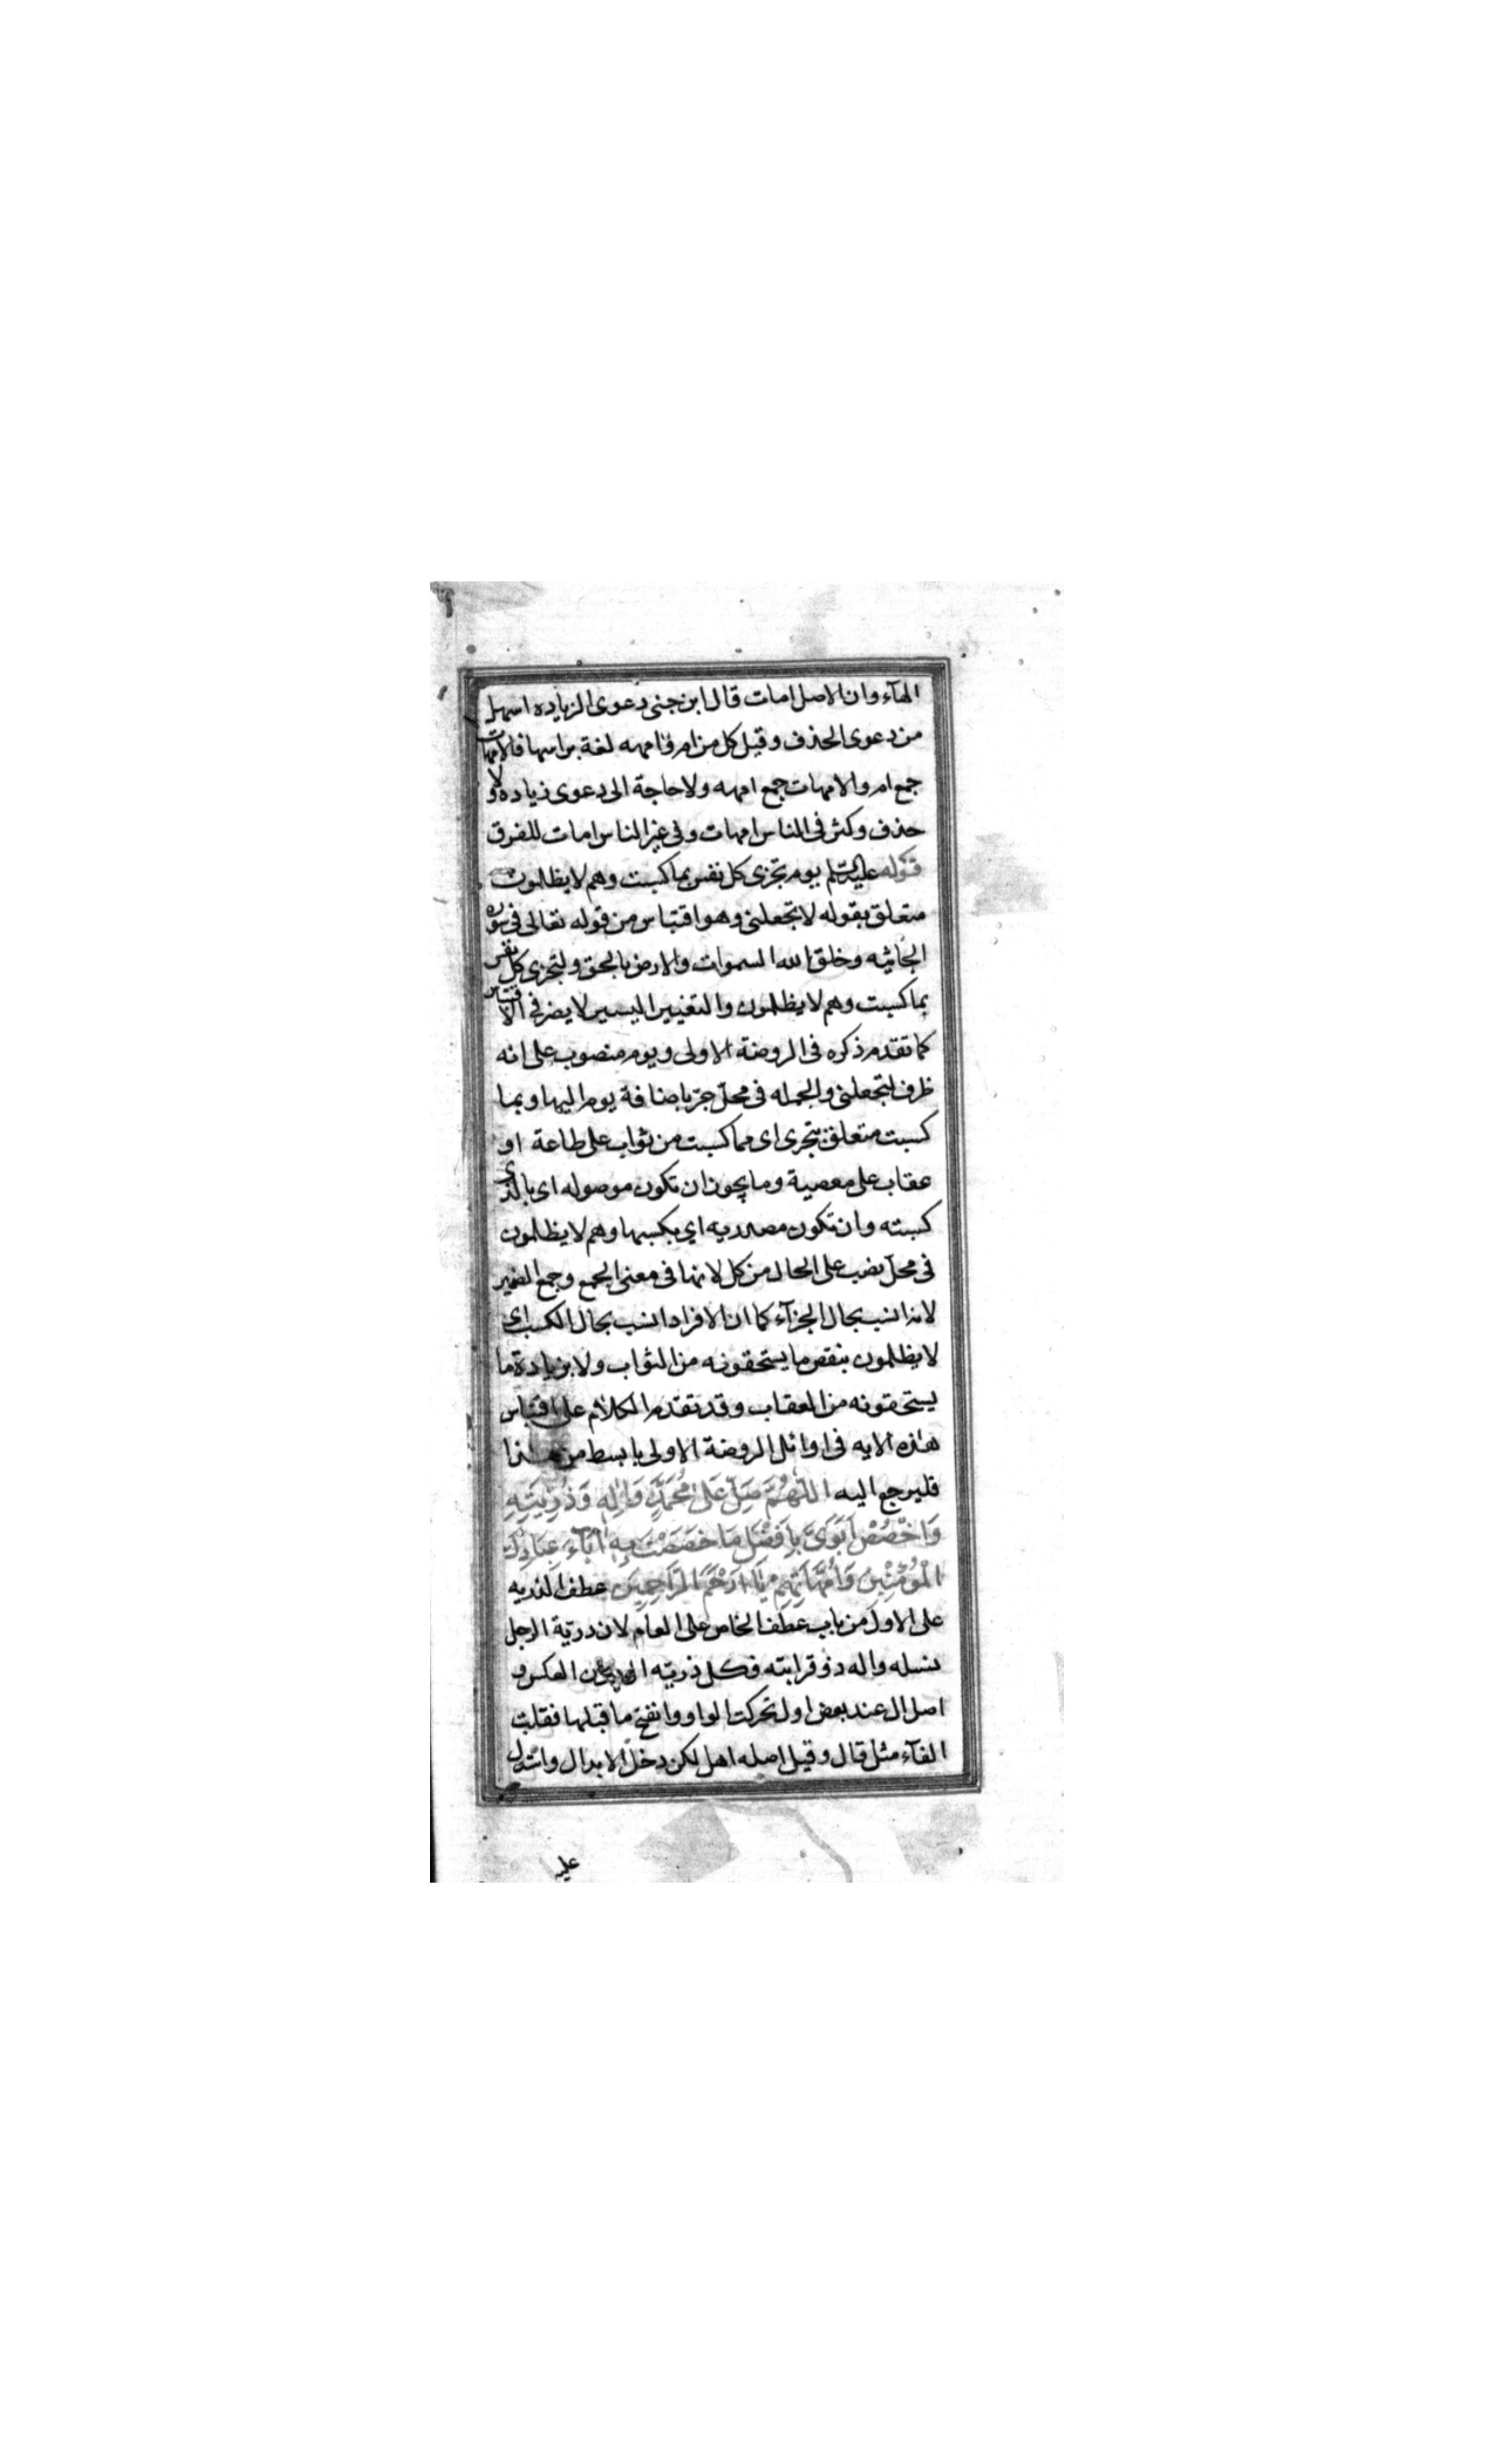 الهآء وان الاصل امات قال ابن جنى دعوى الزياده اسهل
من دعوى الحذف وقيل كل من ام وامهه لغة براسها فالامات
جمع ام والامهات جمع امهه ولا حاجة الى دعوى زياده ولا
حذف وكثر فى الناس امهات وفى غير الناس امات للفرق
قوله عليه السلم يوم تجزى كل نفس بما كسبت وهم لا يظلمون
متعلق بقوله لا تجعلنى وهو اقتباس من قوله تعالى فى سوره
الجاثيه وخلق الله السموات والارض بالحق ولتجزى كل نفس
بما كسبت وهم لا يظلمون والتغيير اليسير لا يضر فى الاقتباس
كما تقدم ذكره فى الروضة الاولى ويوم منصوب على انه
ظرف لتجعلنى والجمله فى محل جر باضافة يوم اليها وبما
كسبت متعلق بتجزى اى مما كسبت من ثواب على طاعة او
عقاب على معصية وما يجوز ان تكون موصوله اى بالذى
كسبته وان تكون مصدريه اي بكسبها وهم لا يظلمون
فى محل نصب على الحال من كل لانها فى معنى الجمع وجمع الضمير
لانه انسب بحال الجزآء كما ان الافراد انسب بحال الكسب اى
لا يظلمون بنقص ما يستحقونه من الثواب ولا بزيادة ما
يستحقونه من العقاب وقد تقدم الكلام على اقتباس
هذه الايه فى اوائل الروضة الاولى بابسط من هذا
فليرجع اليه اللّٰهُمَّ صَلِّ عَلَى مُحَمَّدٍ وَاٰلِهِ وَذُرِّيَّتِهِ
وَاخْصُصْ اَبَوَىَّ بِاَفْضَلِ مَا خَصَصْتَ بِهِ اٰبَآءَ عِبَادِكَ
الْمُؤْمِنِينَ وَاُمَّهَاتِهِمْ يَا اَرْحَمَ الرَّاحِمِينَ عطف الذريه
على الاول من باب عطف الخاص على العام لان ذريّة الرجل
نسله واله ذو قرابته فكل ذريته ال دون العكس و
اصل ال عند بعض اول تحركت الواو وانفتح ما قبلها فقلبت
الفآء مثل قال وقيل اصله اهل لكن دخل الابدال واستدل
عليه